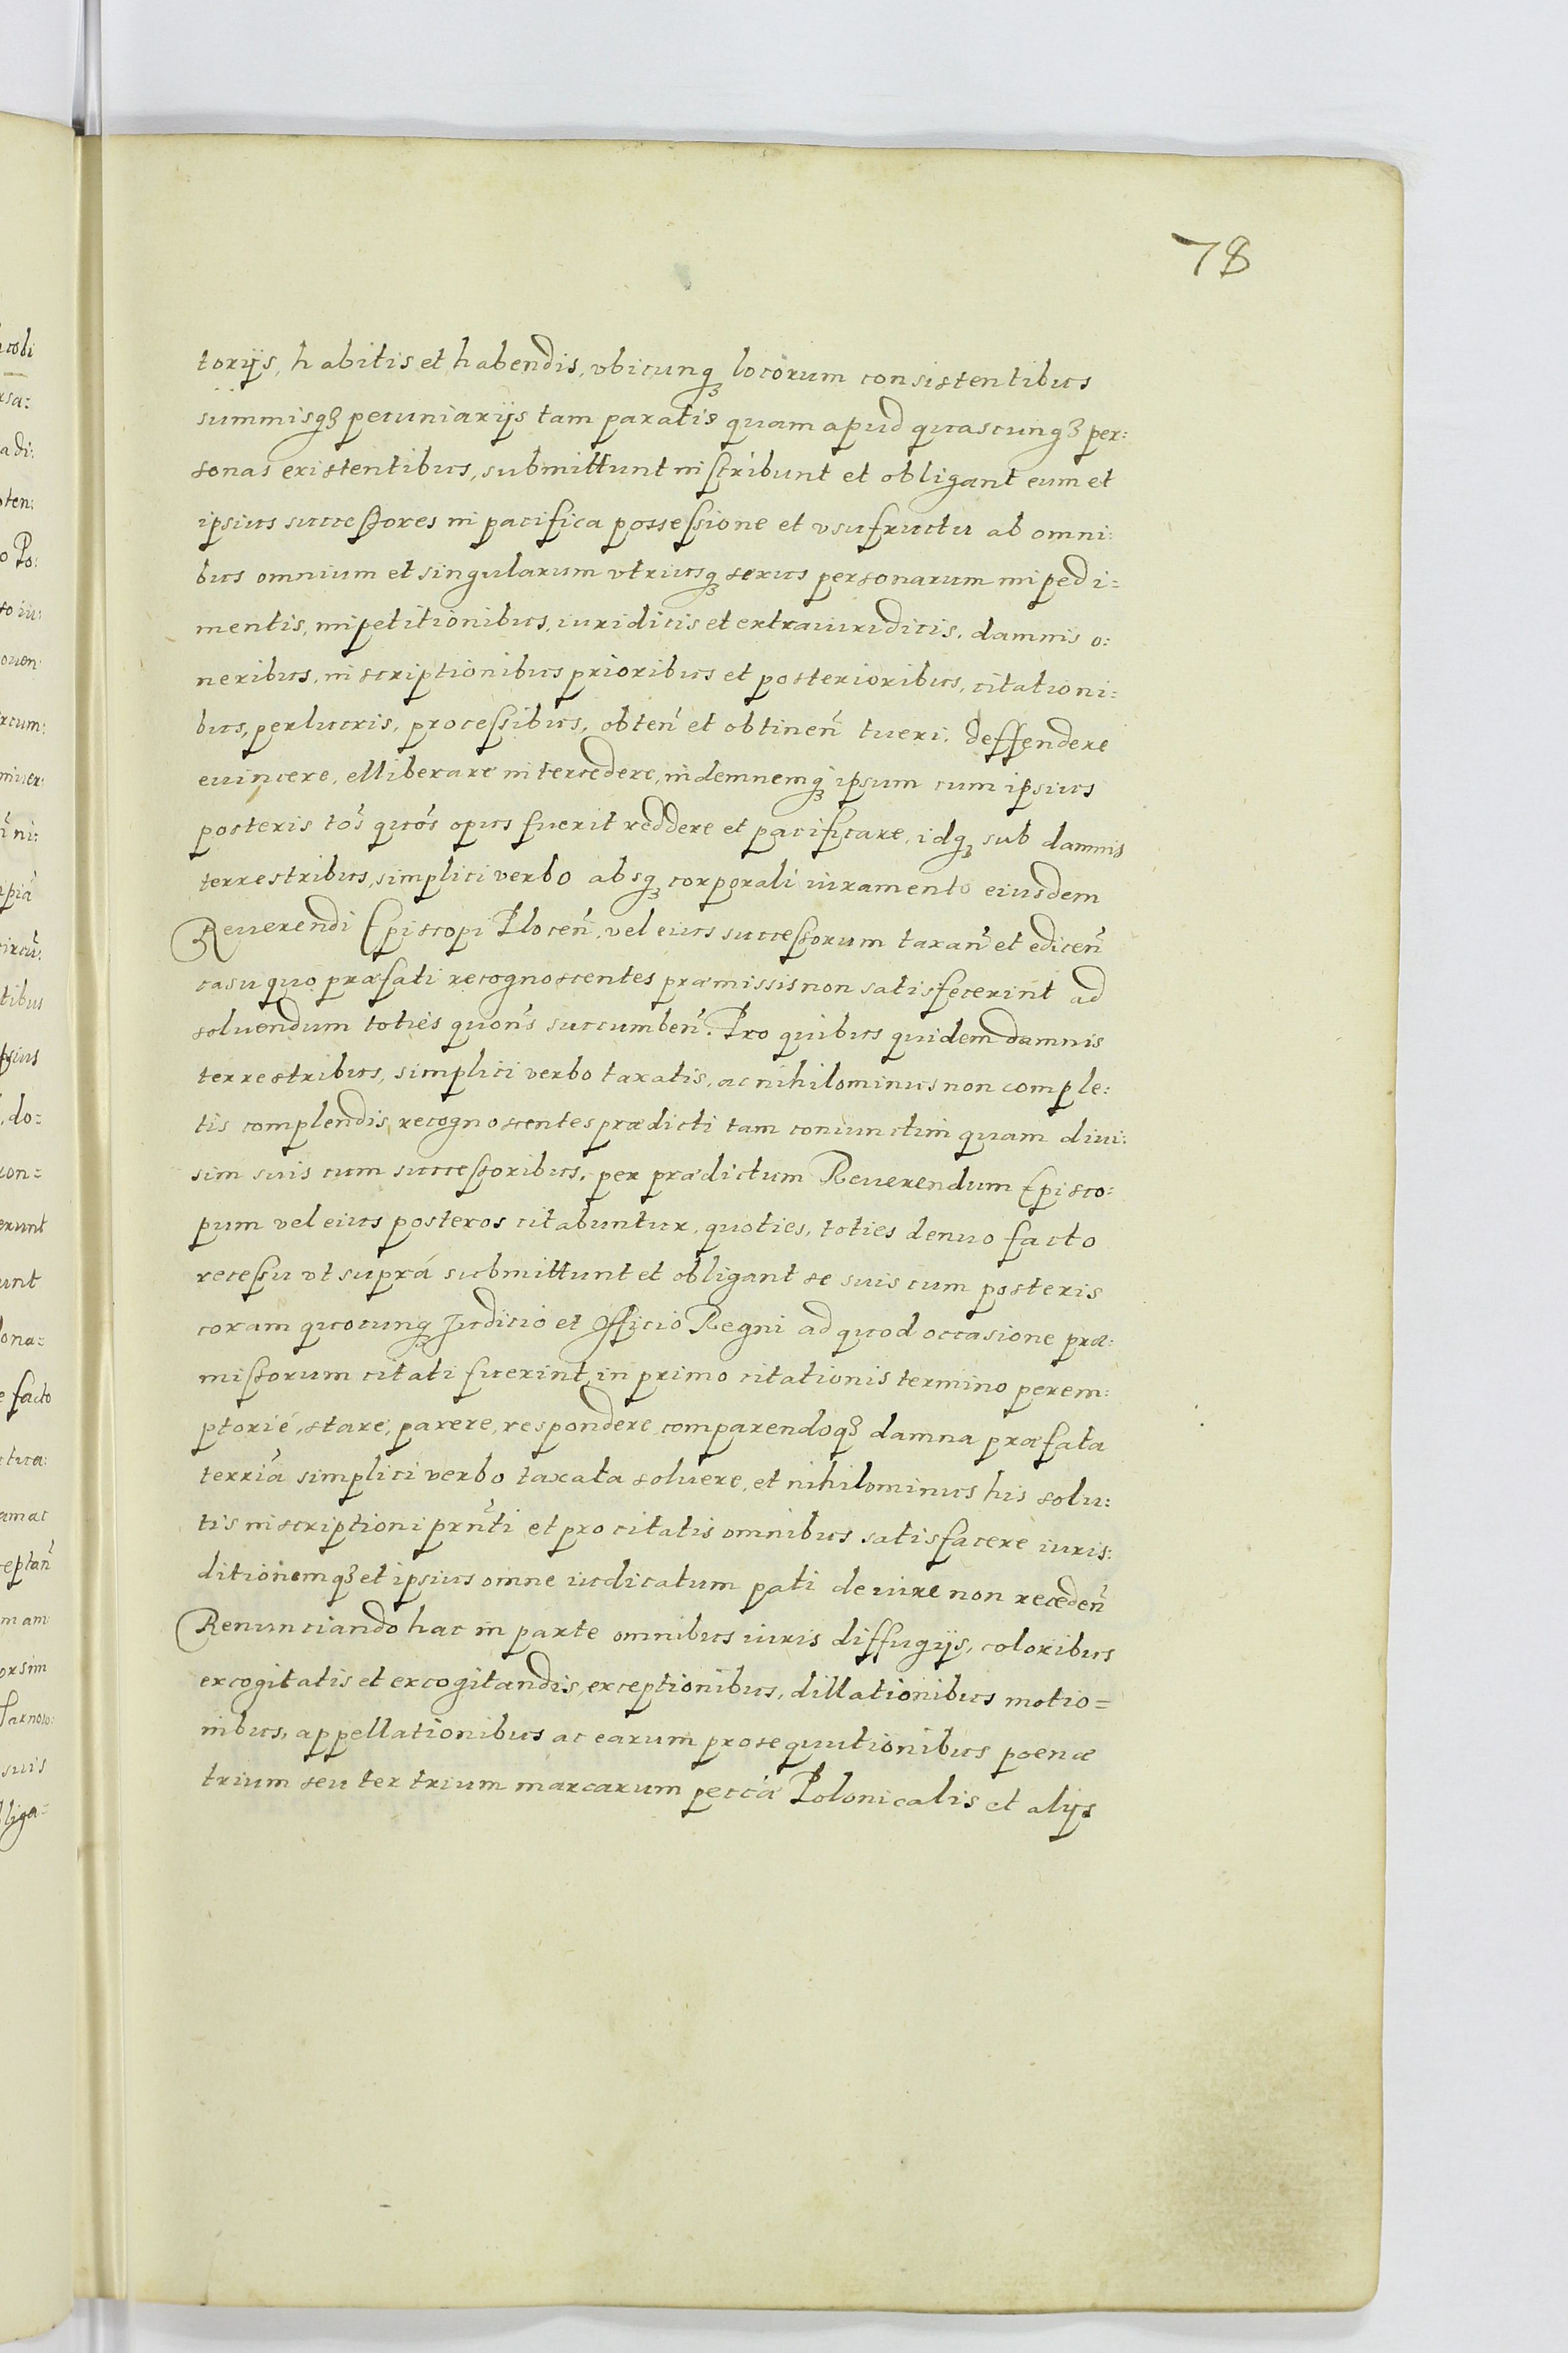 78
torijs, habitis et habendis, vbicunq3 locorum consistentibus
summisq3 pecuniarijs tam paratis quam apud quascunq3 per:
sonas existentibus, submittunt inscribunt et obligant eum et
ipsius successores in pacifica possessione et vsufructu ab omni:
bus omnium et singularum vtriusq3 sexus personarum impedi=
mentis, impetitionibus, iuridicis et extraiuridicis, damnis o:
neribus, inscriptionibus prioribus et posterioribus, citationi:
bus, perlucris, processibus, obten̄ et obtinen̄ tueri, deffendere
euincere, elliberare intercedere, indemnemq3 ipsum cum ipsius
posteris tōs quōs opus fuerit reddere et pacificare, idq3 sub damnis
terrestribus, simplici verbo absq3 corporali iuramento eiusdem
Reuerendi Episcopi Plocen̄, vel eius successorum taxan̄ et edicen̄
casu quo præfati recognoscentes præmissis non satisfecerint ad
soluendum toties quōns succumben̄. Pro quibus quidem damnis
terrestribus, simplici verbo taxatis, ac nihilominus non comple:
tis complendis, recognoscentes prædicti tam coniunctim quam diui:
sim suis cum successoribus, per prædictum Reuerendum Episco:
pum vel eius posteros citabuntur, quoties, toties denuo facto
recessu vt suprá submittunt et obligant se suis cum posteris
coram quocunq3 Judicio et Officio Regni ad quod occasione præ:
missorum citati fuerint, in primo citationis termino perem:
ptorié, stare, parere, respondere, comparendoq3 damna præfata
terriā simplici verbo taxata soluere, et nihilominus his solu:
tis inscriptioni prn̄ti et pro citatis omnibus satisfacere iuris:
ditionemq3 et ipsius omne iudicatum pati de iure non receden̄
Renunciando hac in parte omnibus iuris diffugijs, coloribus
excogitatis et excogitandis, exceptionibus, dillationibus motio=
nibus, appellationibus ac earum prosequutionibus poenæ
trium seu ter trium marcarum peccā Polonicalis et alijs